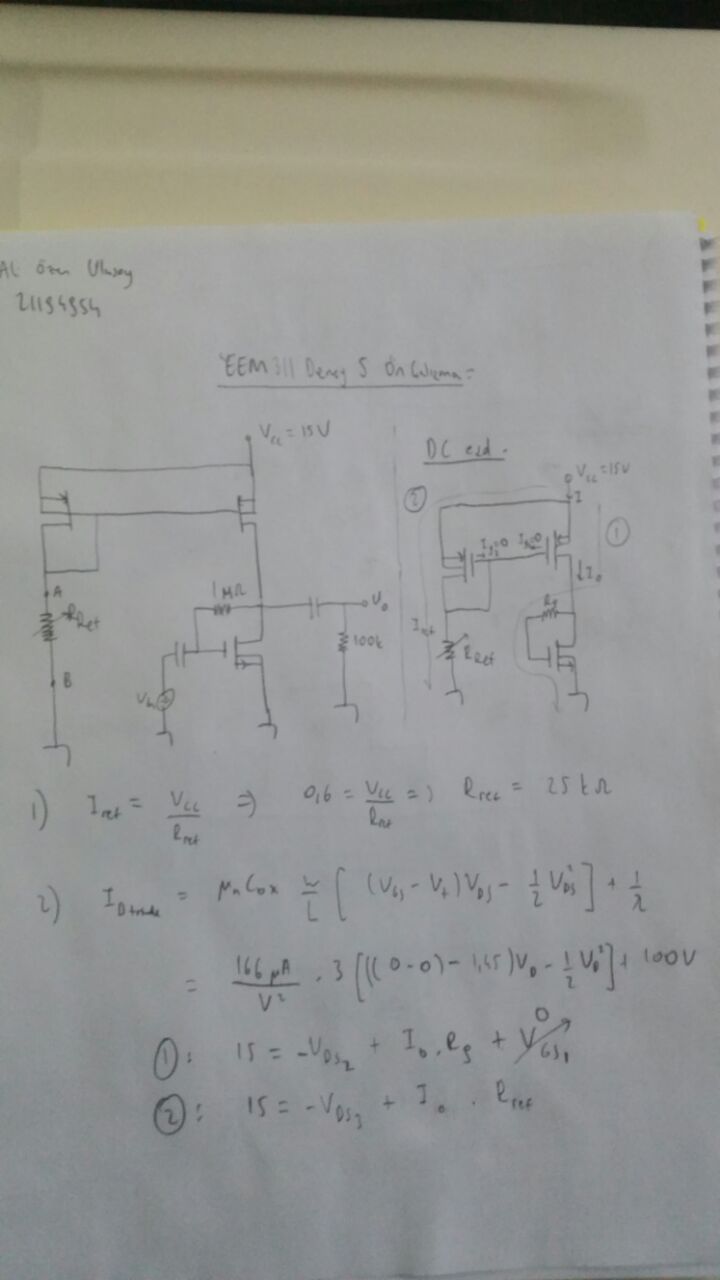 21194954
EEM 311 Deney 5 Ön Çalışma =
Vcc = 15V
A
RRef
B
1 MΩ
Vo
100k
DC eşd.
Vcc = 15V
I
②
①
Io
Iref
RRef
1) Iref = Vcc/Rref ⇒ 0,6 = Vcc/Rref => Rref = 25 kΩ
2) IDtriode = μnCox W/L [ (VGS - Vt)VDS - 1/2 VDS² ] + 1/λ
= 166 μA/V² . 3 [((0-0) - 1,45)VD - 1/2 VD²] + 100V
①: 15 = -VDS2 + Io.Rg + VGS1 0
②: 15 = -VDS3 + Io . Rref